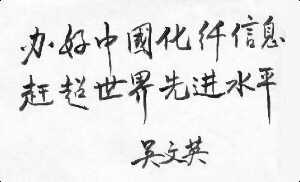 办好中國化纤信息
赶超世界先进水平
吴文英